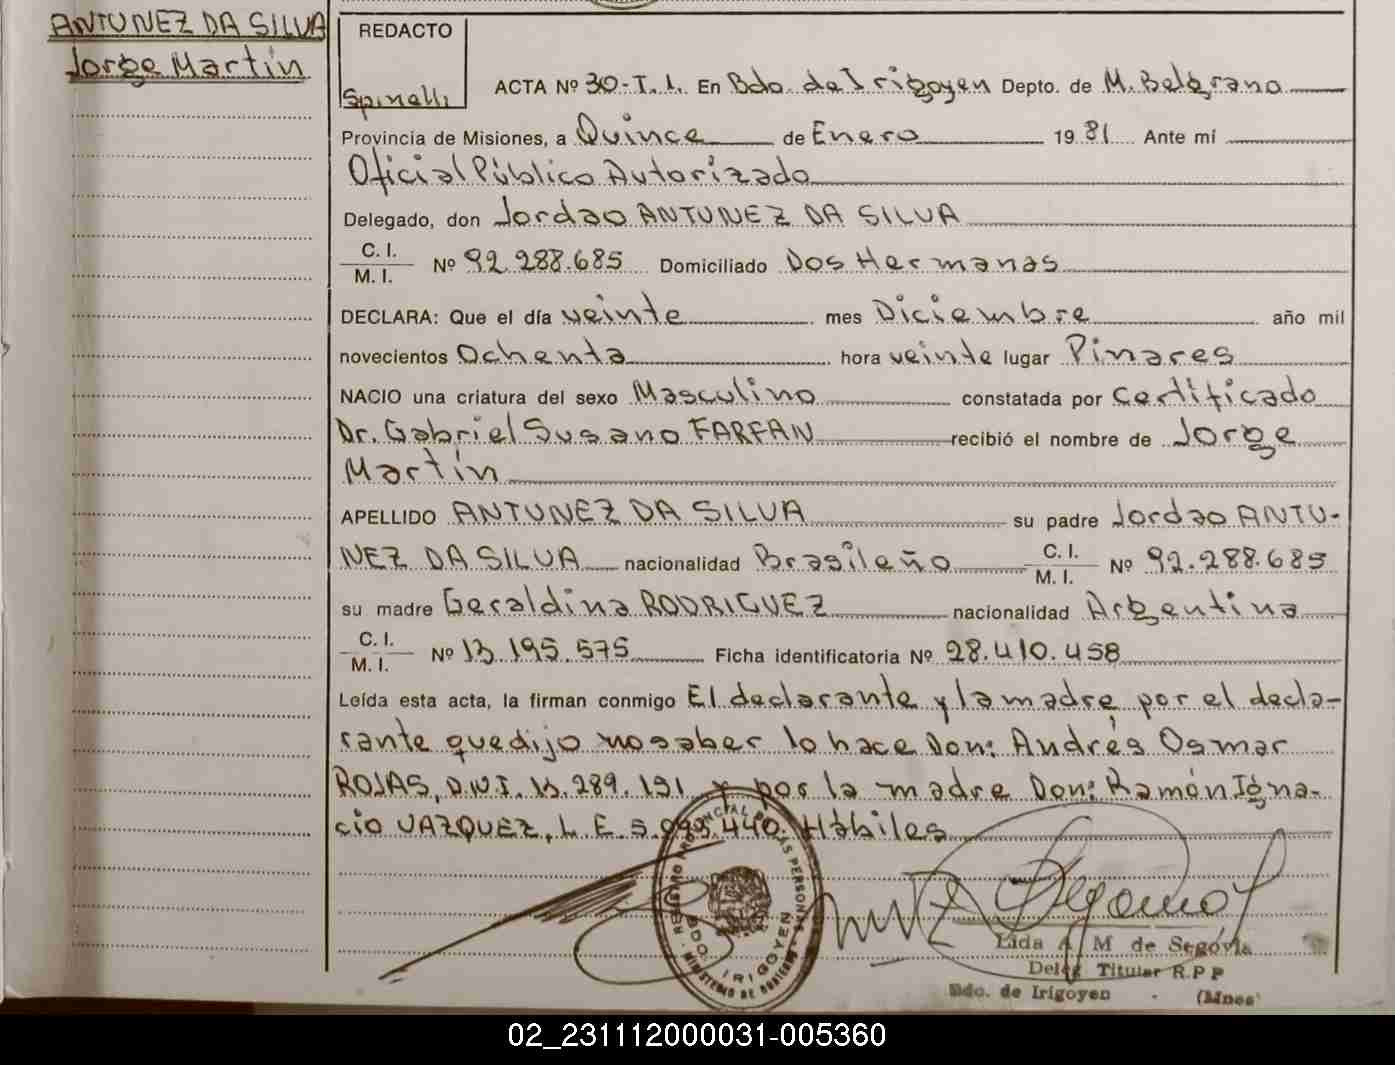 ANTUNEZ DA SILVA
Jorge Martin
REDACTO
Spinelli
ACTA Nº 30-T.1. En Bdo. de Irigoyen Depto. de M. Belgrano
Provincia de Misiones, a Quince de Enero 1981 Ante mi
Oficial Público Autorizado
Delegado, don Jordao ANTUNEZ DA SILVA
C. I.
M. I. Nº 92.288.685 Domiciliado Dos Hermanas
DECLARA: Que el día veinte mes Diciembre año mil
novecientos Ochenta hora veinte lugar Pinares
NACIO una criatura del sexo Masculino constatada por Certificado
Dr. Gabriel Susano FARFAN recibió el nombre de Jorge
Martín
APELLIDO ANTUNEZ DA SILVA su padre Jordao ANTU-
NEZ DA SILVA nacionalidad Brasileño C. I. M. I. Nº 92.288.685
su madre Geraldina RODRIGUEZ nacionalidad Argentina
C. I.
M. I. Nº 13.195.575 Ficha identificatoria Nº 28.410.458
Leída esta acta, la firman conmigo El declarante y la madre, por el decla-
rante que dijo no saber lo hace Don: Andrés Osmar
ROJAS, D.N.I. 13.289.191 y por la madre Don: Ramón Igna-
cio VAZQUEZ, L.E. 5.993.440. Hábiles
REGISTRO PROVINCIAL DE LAS PERSONAS
BDO. IRIGOYEN
MINISTERIO DE GOBIERNO
Lida A. M de Segovia
Deleg Titular R.P.P
Bdo. de Irigoyen - (Mnes)
02_231112000031-005360